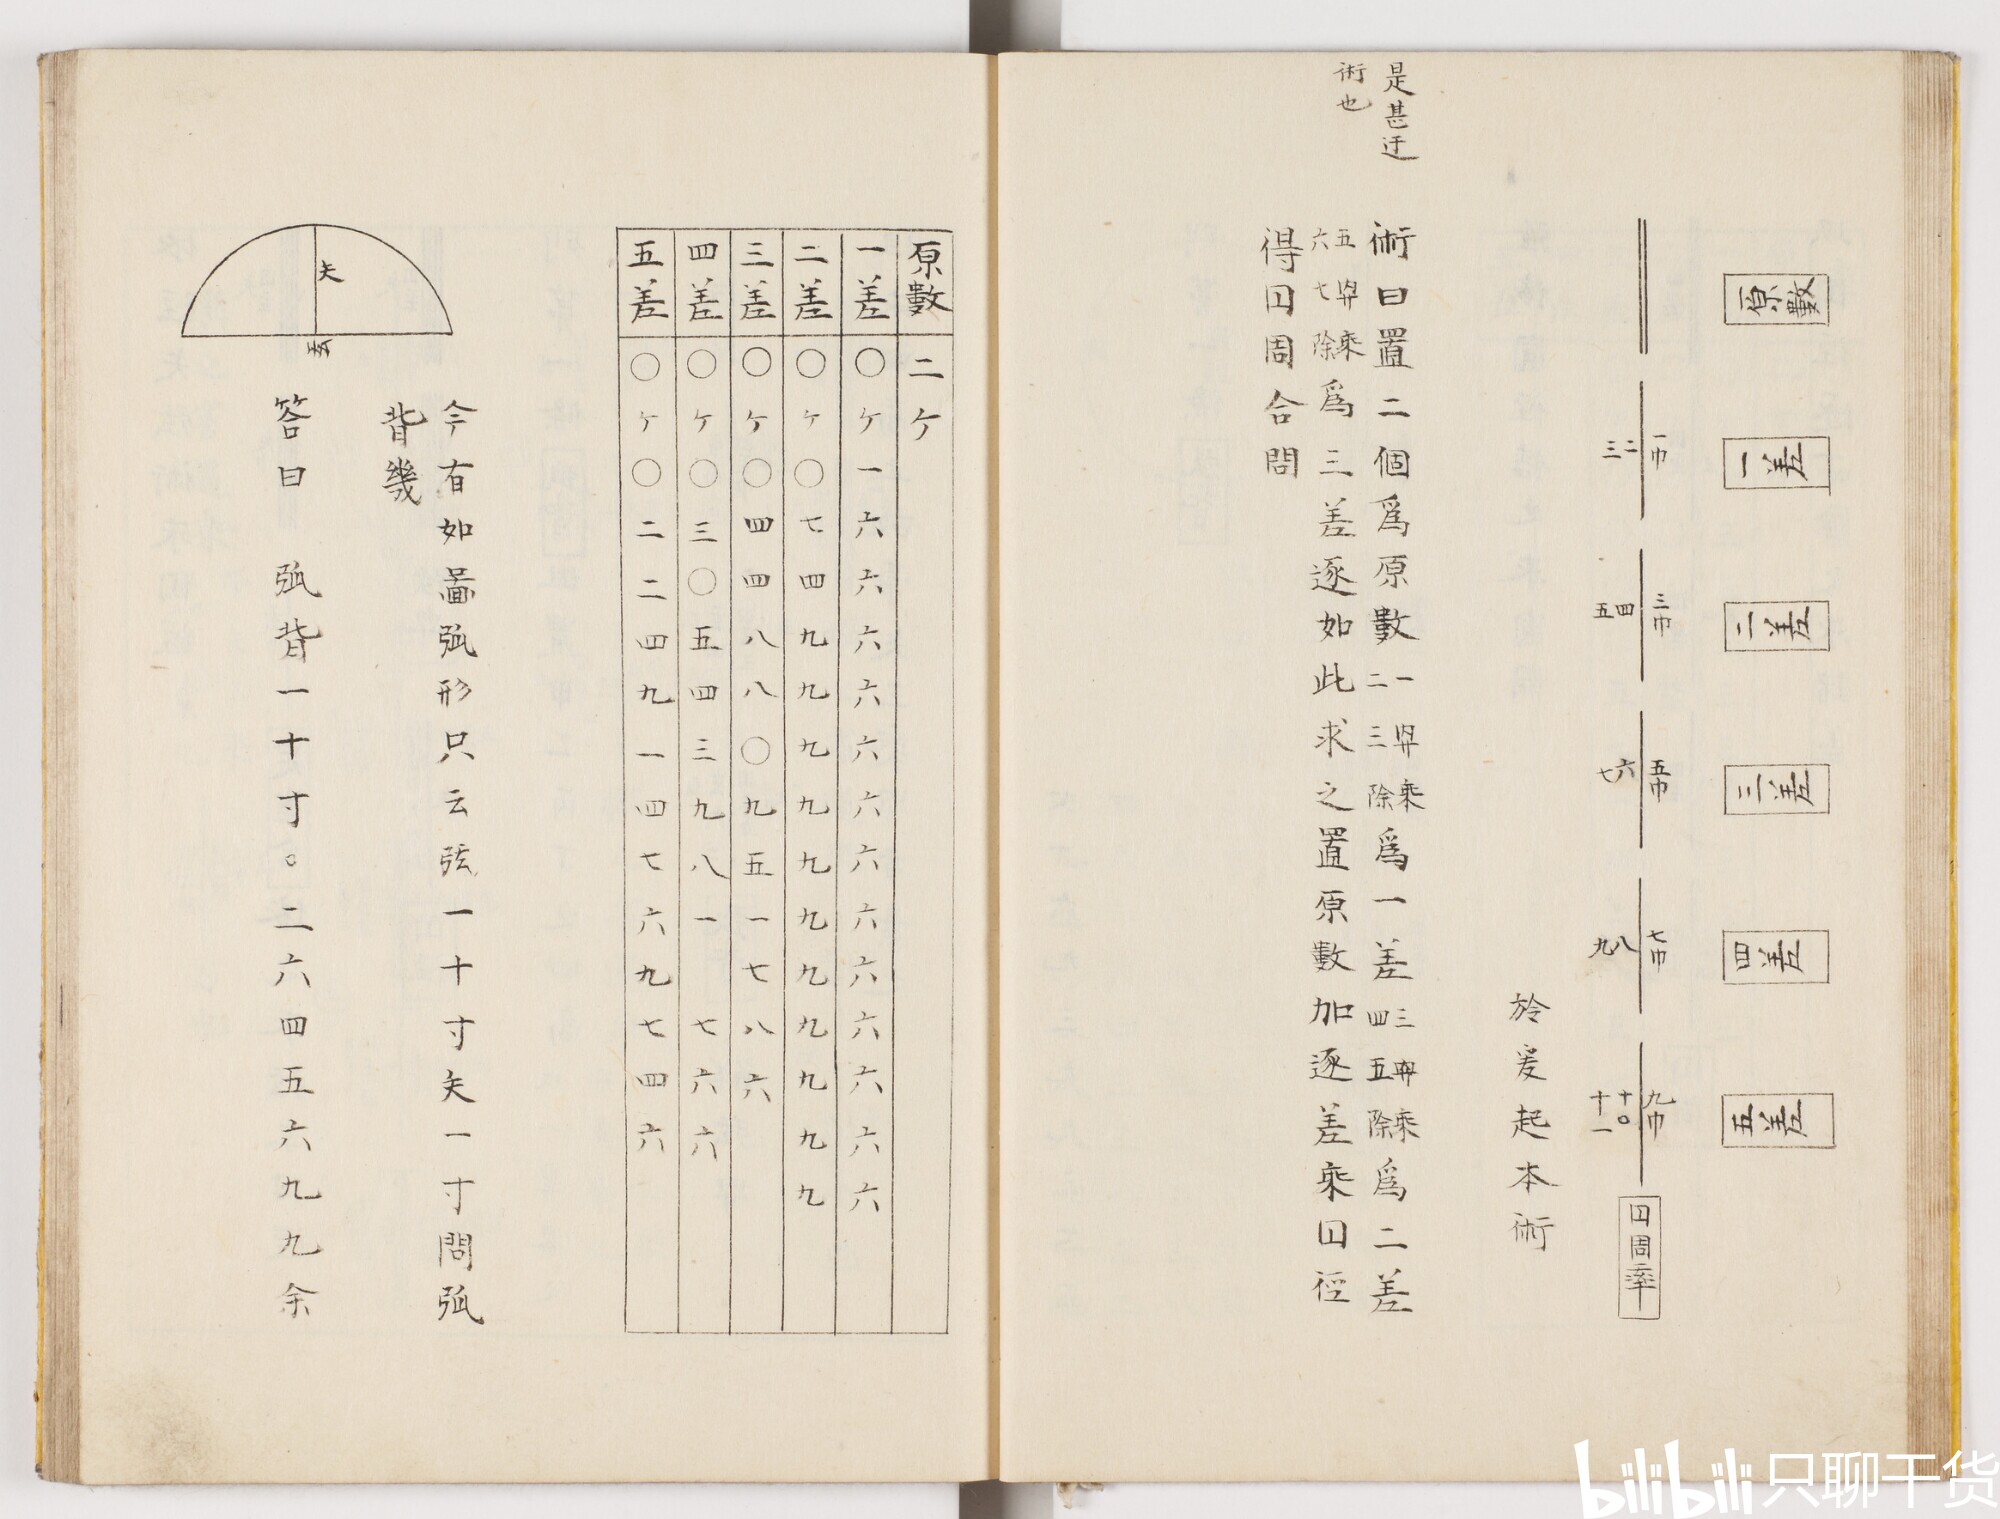 原數
一差
二差
三差
四差
五差
一巾
三巾
五巾
七巾
九巾
二三
四五
六七
八九
十〇十一
円周率
於爰起本術
是甚迂
術也
術曰置二個爲原數一冪乘二三除爲一差三冪乘四五除爲二差
五冪乘六七除爲三差逐如此求之置原數加逐差乘円徑
得円周合問
原數二ケ
一差〇ケ一六六六六六六六六六六六六六
二差〇ケ〇七四九九九九九九九九九九九
三差〇ケ〇四四八八〇九五一七八六
四差〇ケ〇三〇五四三九八一 七六六
五差〇ケ〇二二四九一四七六九七四六
矢
弦
今有如畵弧形只云弦一十寸矢一寸問弧
背幾
答曰 弧背一十寸。二六四五六九九余
bilibili 只聊干货